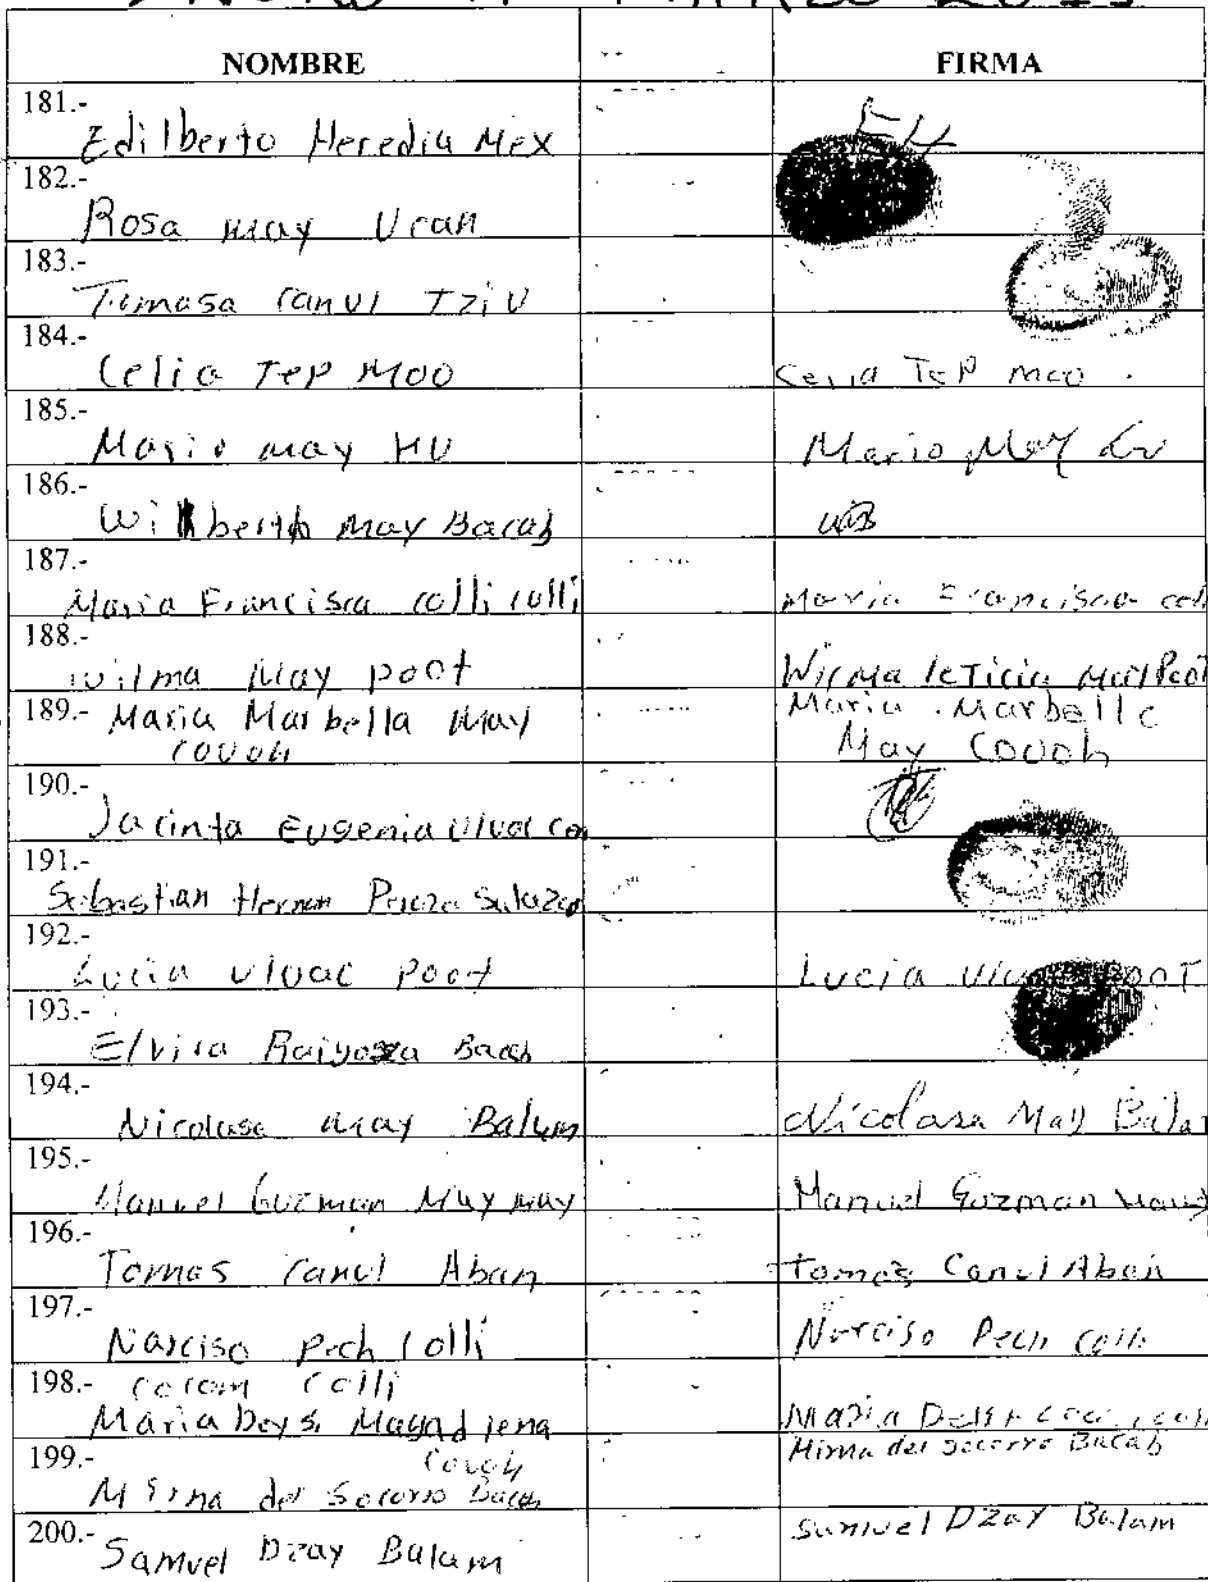 2013
NOMBRE FIRMA
181.-
Edilberto Heredia Mex
182.-
Rosa may Ucan
183.-
Tomasa Canul Tziu
184.-
Celia Tep Moo Celia Tep moo .
185.-
Mario may HU Mario May
186.-
Wilberth May Bacab
187.-
Maria Francisca colli colli Maria Francisca
188.-
Wilma May poot Wilma leticia May Poot
189.- Maria Marbella May Maria Marbella
couoh May Couoh
190.-
Jacinta Eugenia
191.-
Sebastian Hernan Salazar
192.-
Lucia Uluac Poot Lucia Poot
193.-
Elvira Bacab
194.-
Nicolasa may Balam Nicolasa May
195.-
Manuel Guzman May may Manuel Guzman
196.-
Tomas Canul Aban Tomas Canul Aban
197.-
Narciso Pech Colli Narciso Pech Colli
198.- Cocom Colli
Maria Deysi Magadalena Maria
199.- Couoh Mirna del Socorro Bacab
Mirna del Socorro Bacab
200.- Samuel Dzay Balam Samuel Dzay Balam